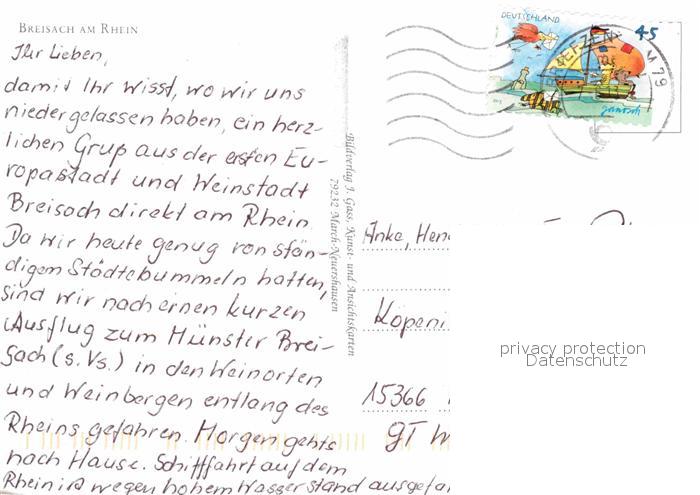 BREISACH AM RHEIN
Ihr Lieben,
damit Ihr wisst, wo wir uns
niedergelassen haben, ein herz-
lichen Gruß aus der ersten Eu-
ropastadt und Weinstadt
Breisach direkt am Rhein.
Da wir heute genug von stän-
digem Städtebummeln hatten,
sind wir nach einen kurzen
Ausflug zum Münster Brei-
sach (s. Vs.) in den Weinorten
und Weinbergen entlang des
Rheins gefahren. Morgen gehts
nach Hause. Schifffahrt auf dem
Rhein ist wegen hohem Wasserstand ausgefa
Bildverlag J. Gass, Kunst- und Ansichtskarten
79232 March-Neuershausen
DEUTSCHLAND
45
janosch
79
Anke, Hen
Köpeni
15366
GT
privacy protection
Datenschutz